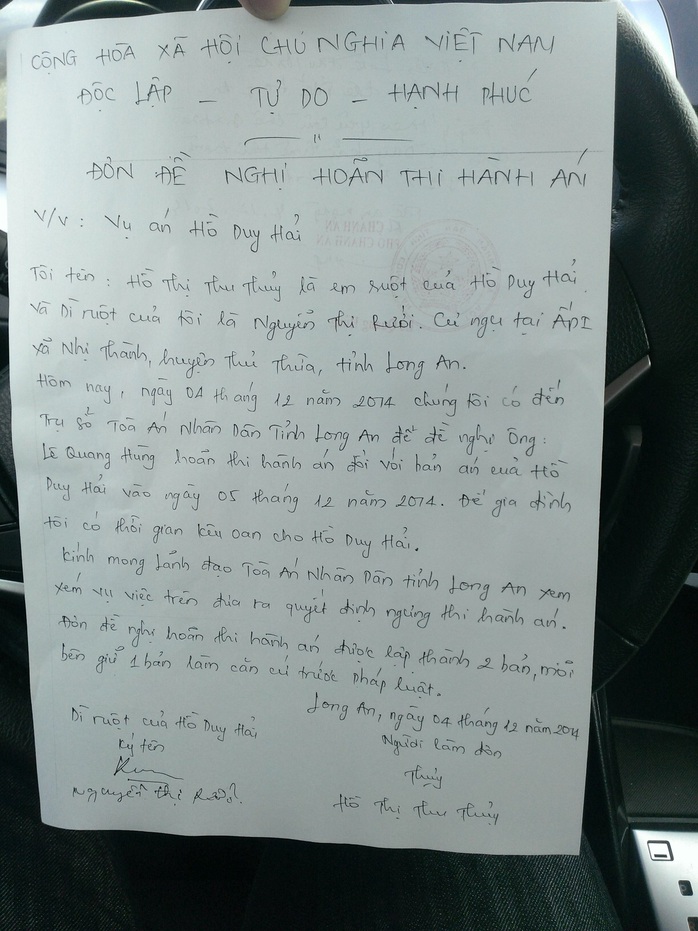 CỘNG HÒA XÃ HỘI CHỦ NGHĨA VIỆT NAM
ĐỘC LẬP - TỰ DO - HẠNH PHÚC
ĐƠN ĐỀ NGHỊ HOÃN THI HÀNH ÁN
V/V: Vụ án Hồ Duy Hải
Tôi tên: Hồ Thị Thu Thủy là em ruột của Hồ Duy Hải
và Dì ruột của tôi là Nguyễn Thị Rưởi. Cư ngụ tại Ấp I
xã Nhị Thành, huyện Thủ Thừa, tỉnh Long An.
Hôm nay, ngày 04 tháng 12 năm 2014 chúng tôi có đến
Trụ sở Toà Án Nhân Dân Tỉnh Long An để đề nghị Ông:
Lê Quang Hùng hoãn thi hành án đối với bản án của Hồ
Duy Hải vào ngày 05 tháng 12 năm 2014. Để gia đình
tôi có thời gian kêu oan cho Hồ Duy Hải.
Kính mong Lãnh đạo Toà Án Nhân Dân tỉnh Long An xem
xém vụ việc trên đưa ra quyết định ngừng thi hành án.
Đơn đề nghị hoãn thi hành án được lập thành 2 bản, mỗi
bên giữ 1 bản làm căn cứ trước pháp luật.
Long An, ngày 04 tháng 12 năm 2014
Dì ruột của Hồ Duy Hải
Người làm đơn
Ký tên
Thủy
Nguyễn Thị Rưởi
Hồ Thị Thu Thủy